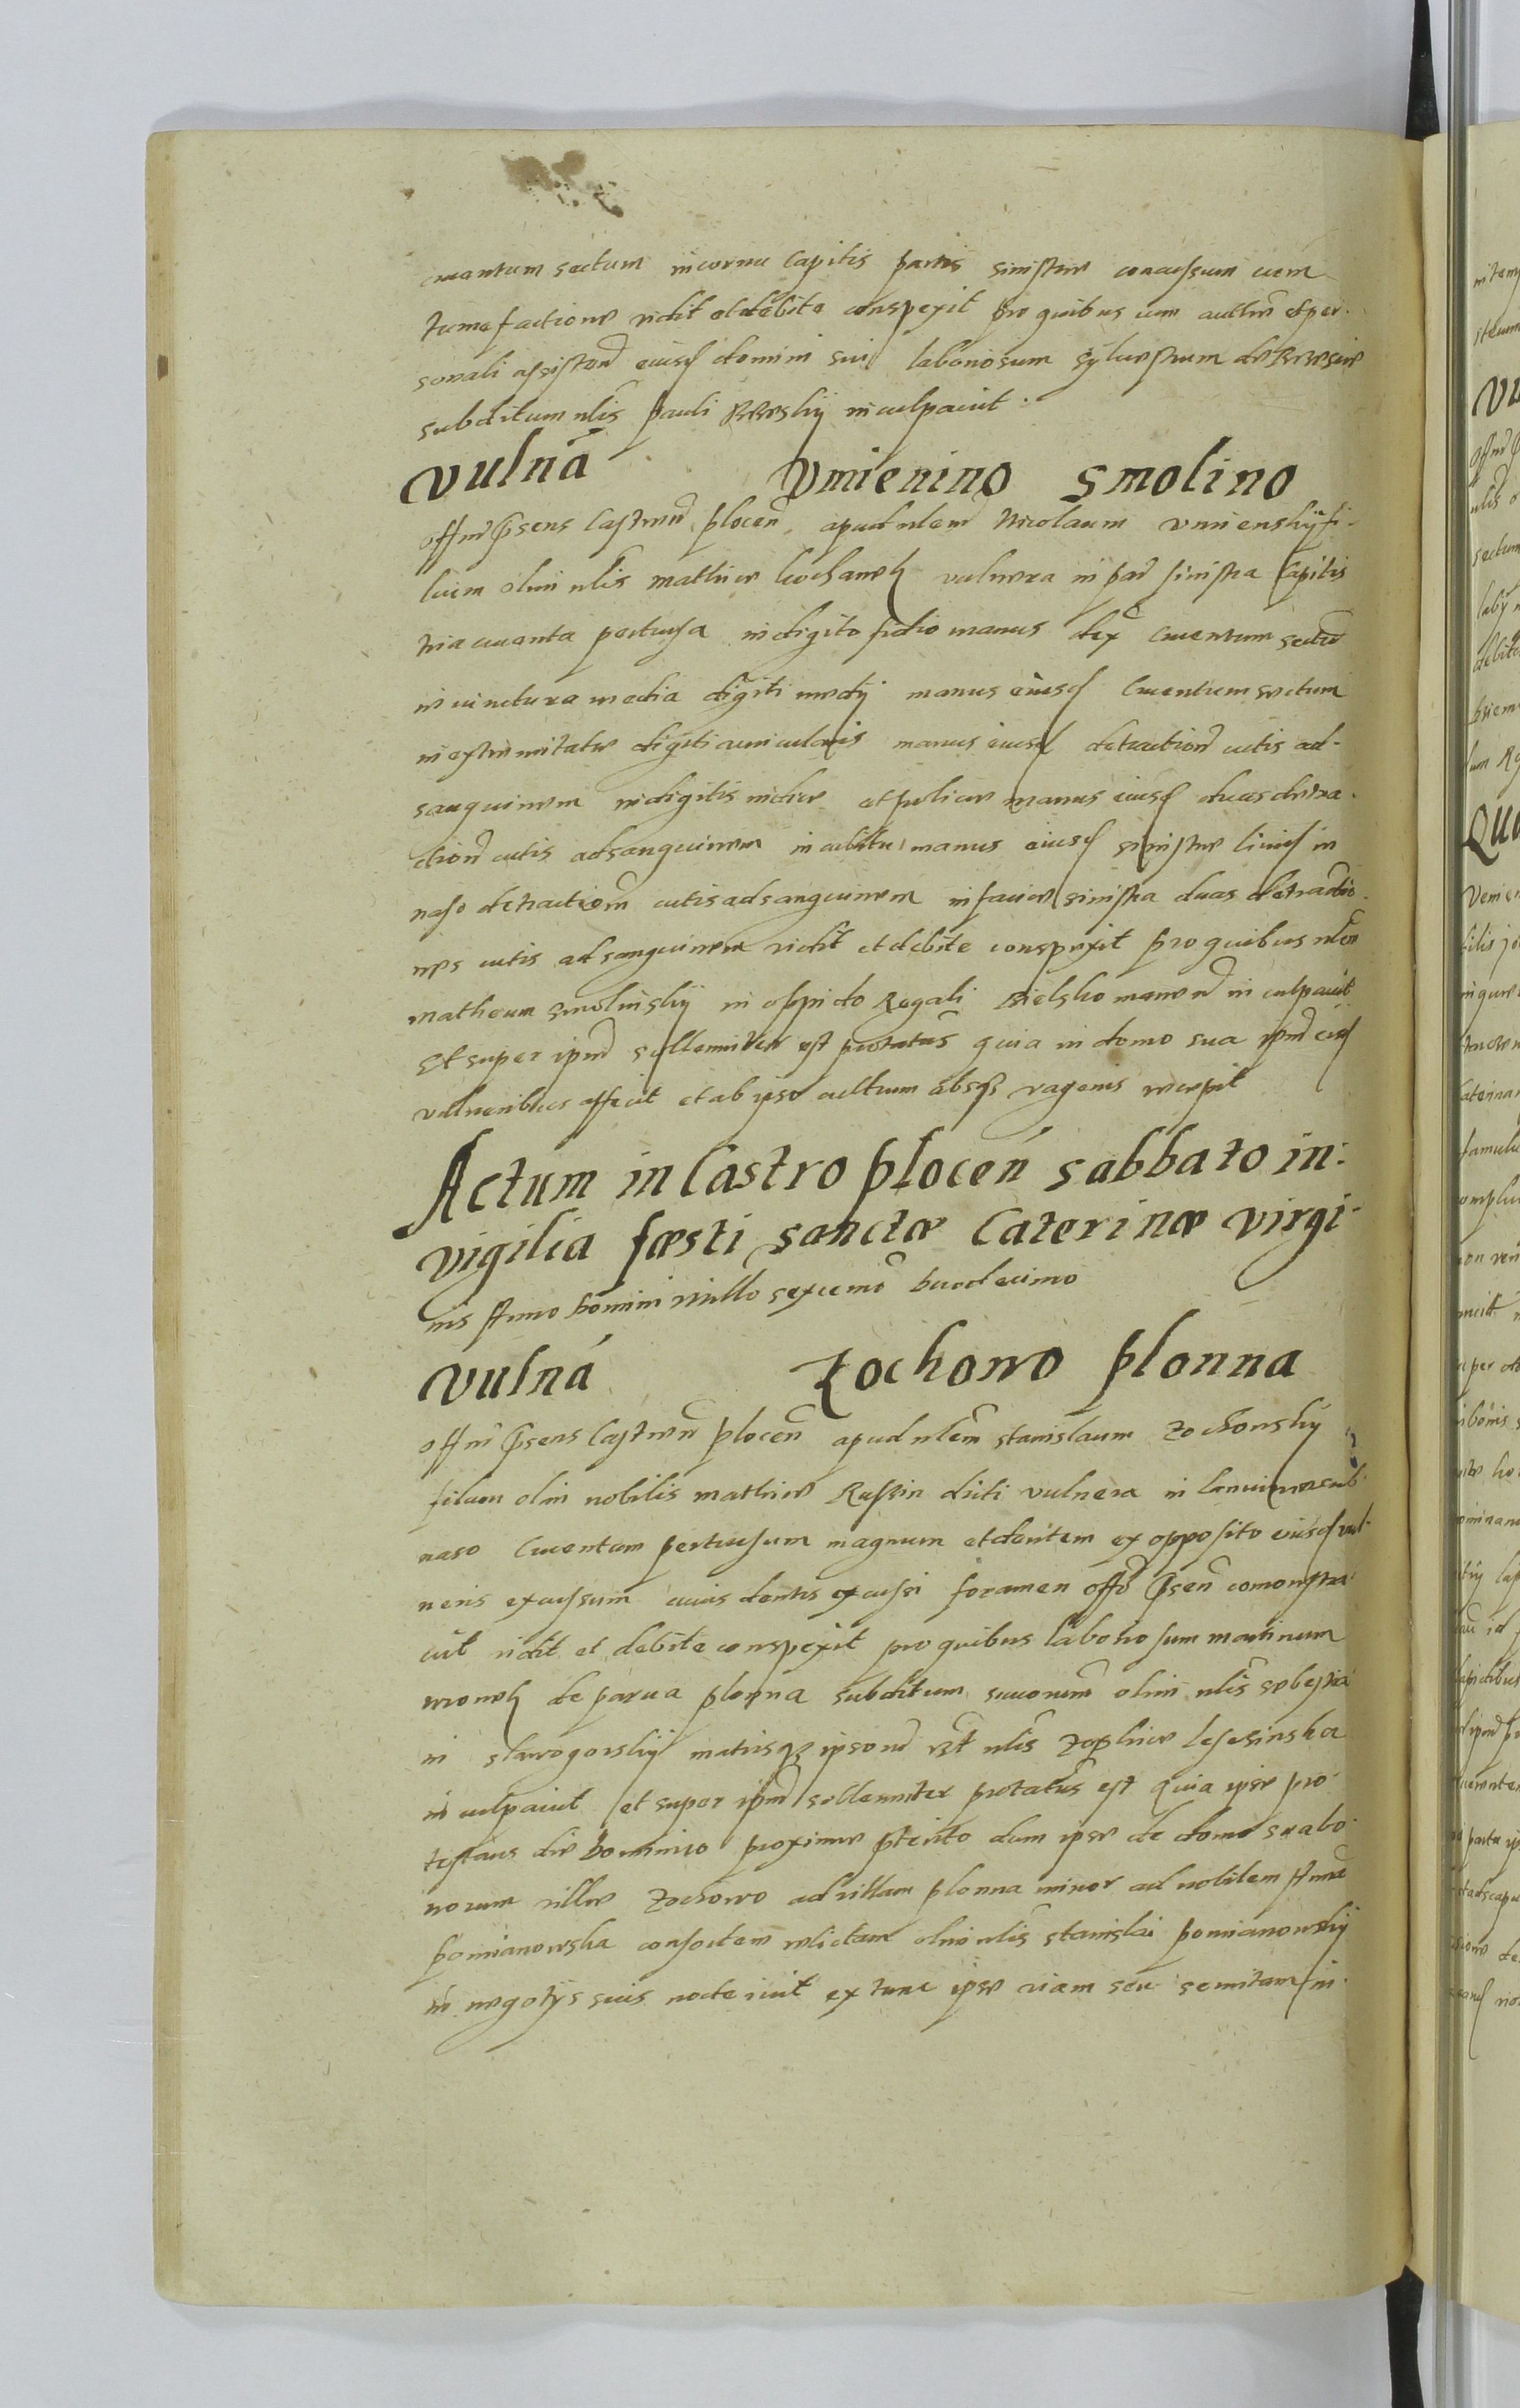 cruentum sectum in cornu Capitis partis sinistrae concussum cum
tumefactione vidit et debite conspexit pro quibus cum auctte et per-
sonali assisten eiusd domini sui laboriosum Syluestrum de
subditum nlis Pauli inculpauit.
Vulná Vmienino Smolino
Offm psens Castren plocen apud nlem Nicolaum Vmienskÿ fi-
lium olim nlis Mathiae Kochanek vulnera in par sinistra Capitis
tria cruenta pertusa in digito manus dex Cruentum sectu
in iunctura media digiti medij manus eiusd Cruentum sectum
in extremitate digiti auricularis manus eiusd detraction cutis ad-
sanguinem in digitis indice et pollice manus eiusd duas detra-
ction cutis ad sanguinem in cubitu manus eiusd sinistrae liuid in
naso detractionem cutis ad sanguinem in facie sinistra duas detractio-
nes cutis ad sanguinem vidit et debite conspexit pro quibus nlem
Matheum Smolinskÿ in oppido Regali Bielsko manen inculpauit
Et super ipm sollemniter est protatus quia in domo sua ipm eisd
vulneribus affecit et ab ipso cultrum absq vagenis recepit
Actum in Castro plocen sabbato in-
vigilia faesti sanctae Caterinae virgi-
nis Anno Domini Millo sexcemo duodecimo
Vulná Zochowo plonna
Offm psens Castren plocen apud nlem Stanislaum Zochowskÿ
filium olim nobilis Mathiae dicti vulnera in sub
naso Cruentum pertusum magnum et dentem ex opposito eiusd vul-
neris excussum cuius dentis excussi foramen offo psen comonstra-
uit vidit et debite conspexit pro quibus laboriosum Martinum
Wronek de parua plonna subditum succorum olim nlis Sebestia-
ni Starogorskÿ matrisq ipsor vt nlis Zophiae
inculpauit et super ipm sollemniter protatus est quia ipse pro-
testans die Dominico proxime pterito dum ipse de domo sua bo-
norum villae Zochowo ad villam plonna minor ad nobilem Anna
Pomianowska consortem relictam olim nlis Stanislai Pomianowskÿ
in negotijs suis nocte iuit ex tunc ipse viam seu semitam in-